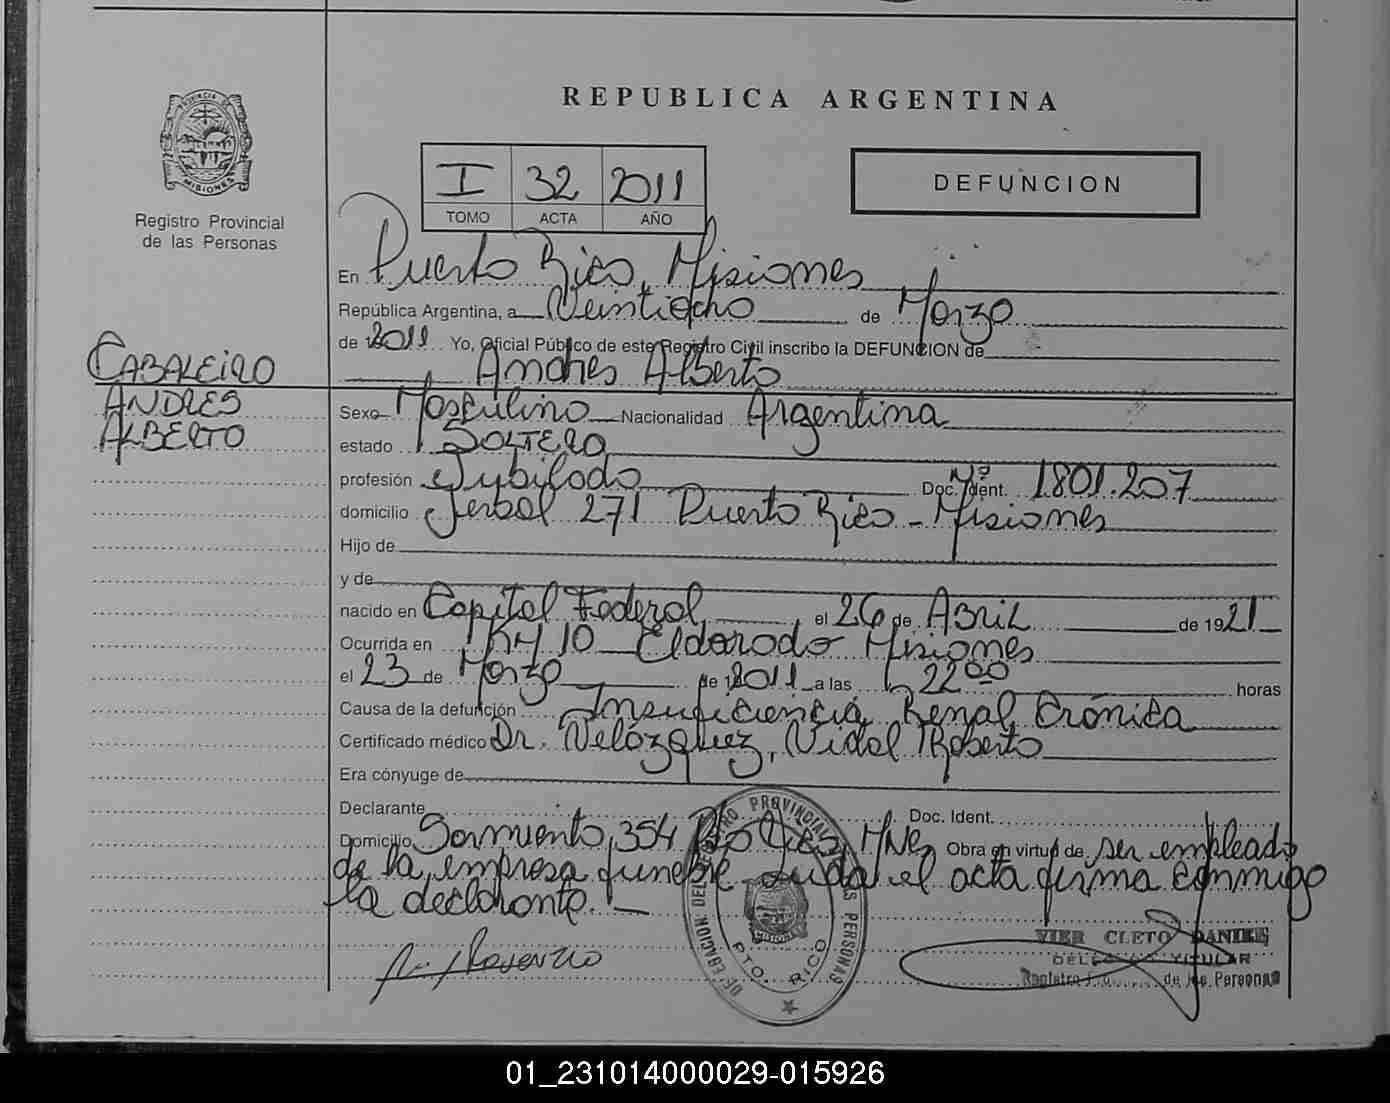 REPUBLICA ARGENTINA
PROVINCIA DE
MISIONES
Registro Provincial
de las Personas
I 32 2011
TOMO ACTA AÑO
DEFUNCION
En Puerto Rico, Misiones
República Argentina, a Veintiocho de Marzo
de 2011 Yo, Oficial Público de este Registro Civil inscribo la DEFUNCION de
CABALEIRO
Andrés Alberto
ANDRES
ALBERTO
Sexo Masculino Nacionalidad Argentina
estado SOLTERO
profesión Jubilado Doc. Ident. Nº 1801.207
domicilio Jerbal 271 Puerto Rico - Misiones
Hijo de
y de
nacido en Capital Federal el 26 de Abril de 1921
Ocurrida en KM 10 Eldorado Misiones
el 23 de Marzo de 2011 a las 22 00 horas
Causa de la defunción Insuficiencia Renal Crónica
Certificado médico Dr. Velázquez, Vidal Roberto
Era cónyuge de
Declarante Doc. Ident.
Domicilio Sarmiento 354 Pto Rico, Mnes Obra en virtud de ser empleado
de la empresa funebre. Leida el acta firma conmigo
la declarante.
DELEGACION DEL REGISTRO PROVINCIAL DE LAS PERSONAS
MISIONES
PTO. RICO
VIER CLETO DANIEL
DELEGADO TITULAR
Registro de las Personas
01_231014000029-015926